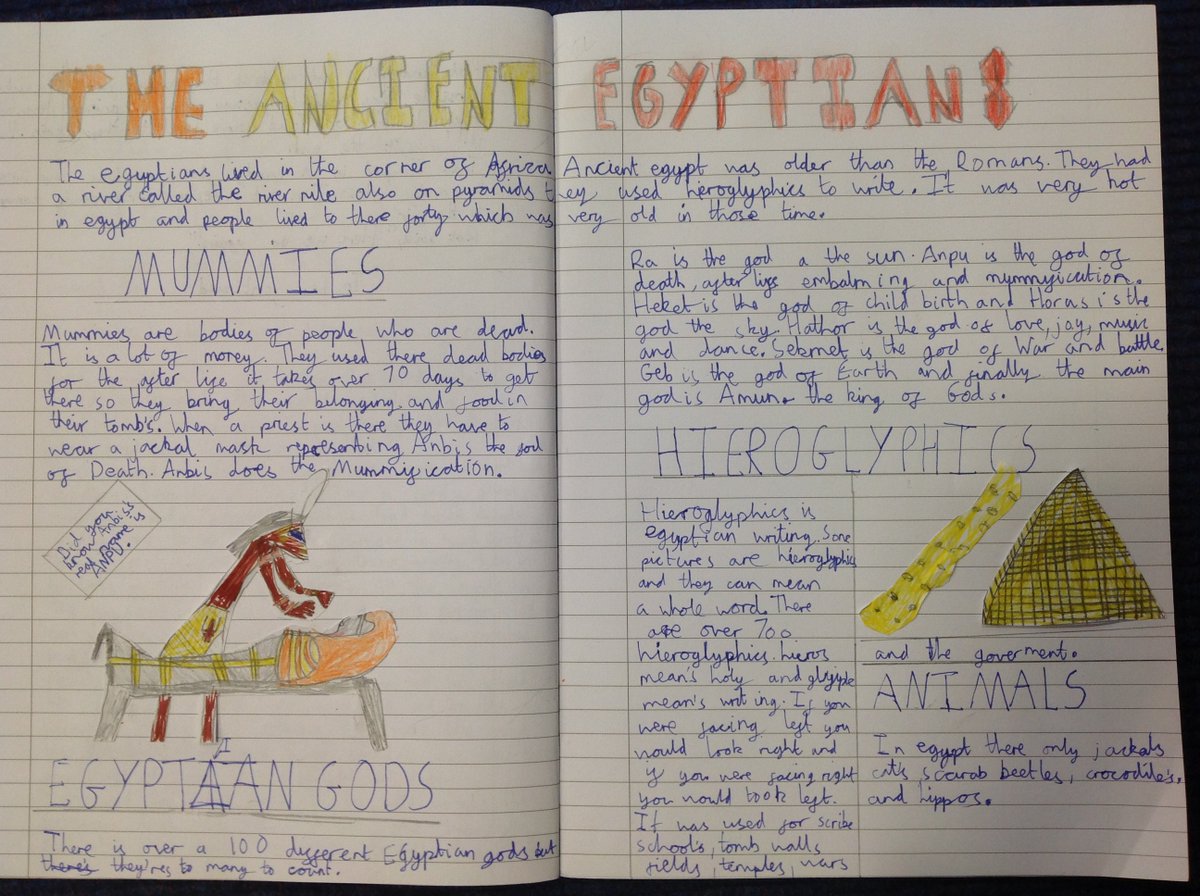 THE ANCIENT EGYPTIANS
The egyptians lived in the corner of Africa Ancient egypt was older than the Romans. They had
a river called the river nile also on pyramids they used heroglyphics to write. It was very hot
in egypt and people lived to there forty which was very old in those time.
MUMMIES
Mummies are bodies of people who are dead.
It is a lot of morey. They used there dead bodies
for the after life it takes over 70 days to get
there so they bring their belonging and food in
their tomb's. When a priest is there they have to
wear a jackal mask representing Anbis the god
of Death. Anbis does the Mummification.
Did you
know Anbis's
real name is
ANPU?
EGYPTIAN GODS
There is over a 100 different Egyptian gods but
there's they'res to many to count.
Ra is the god a the sun. Anpu is the god of
death, after life embalming and mymmyication.
Heket is the god of child birth and Horas is the
god the sky. Hathor is the god of love, joy, music
and dance. Sekmet is the god of War and battle
Geb is the god of Earth and finally the main
god is Amun. the king of Gods.
HIEROGLYPHICS
Hieroglyphics is
egyptian writing. Some
pictures are hieroglyphics
and they can mean
a whole word. There
are over 700
hieroglyphics. hieros
mean's holy and
mean's writing. If you
were facing left you
would look right and
if you were facing right
you would look left.
It was used for scribe
school's, tomb walls
fields, temples, wars
and the goverment.
ANIMALS
In egypt there only jackals
cat's scarab beetles, crocodile's.
and hippos.